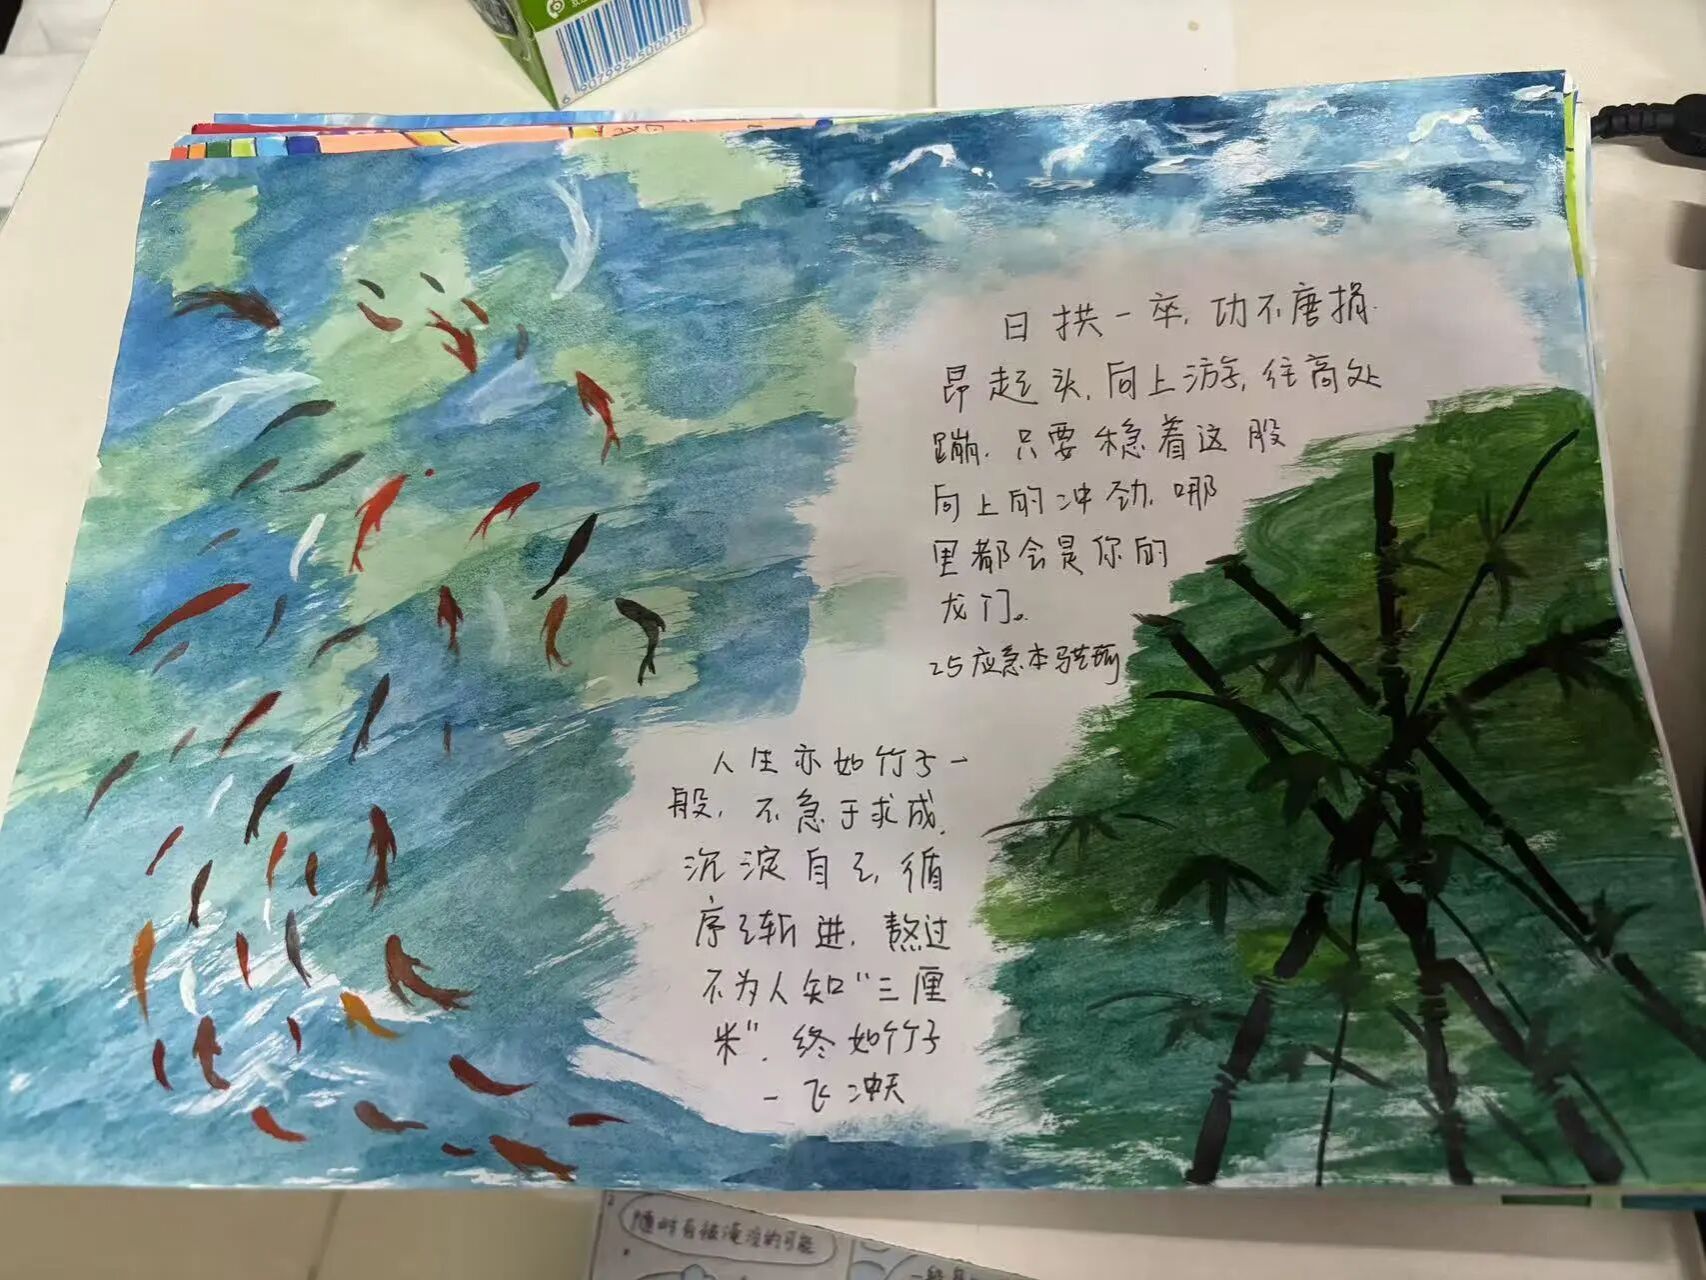 6 907992 500010
日拱一卒，功不唐捐.
昂起头，向上游，往高处
蹦，只要稳着这股
向上的冲劲，哪
里都会是你的
龙门。
25应急本
人生亦如竹子一
般，不急于求成，
沉淀自己，循
序渐进，熬过
不为人知“三厘
米”，终如竹子
一飞冲天
随时有被淹没的可能